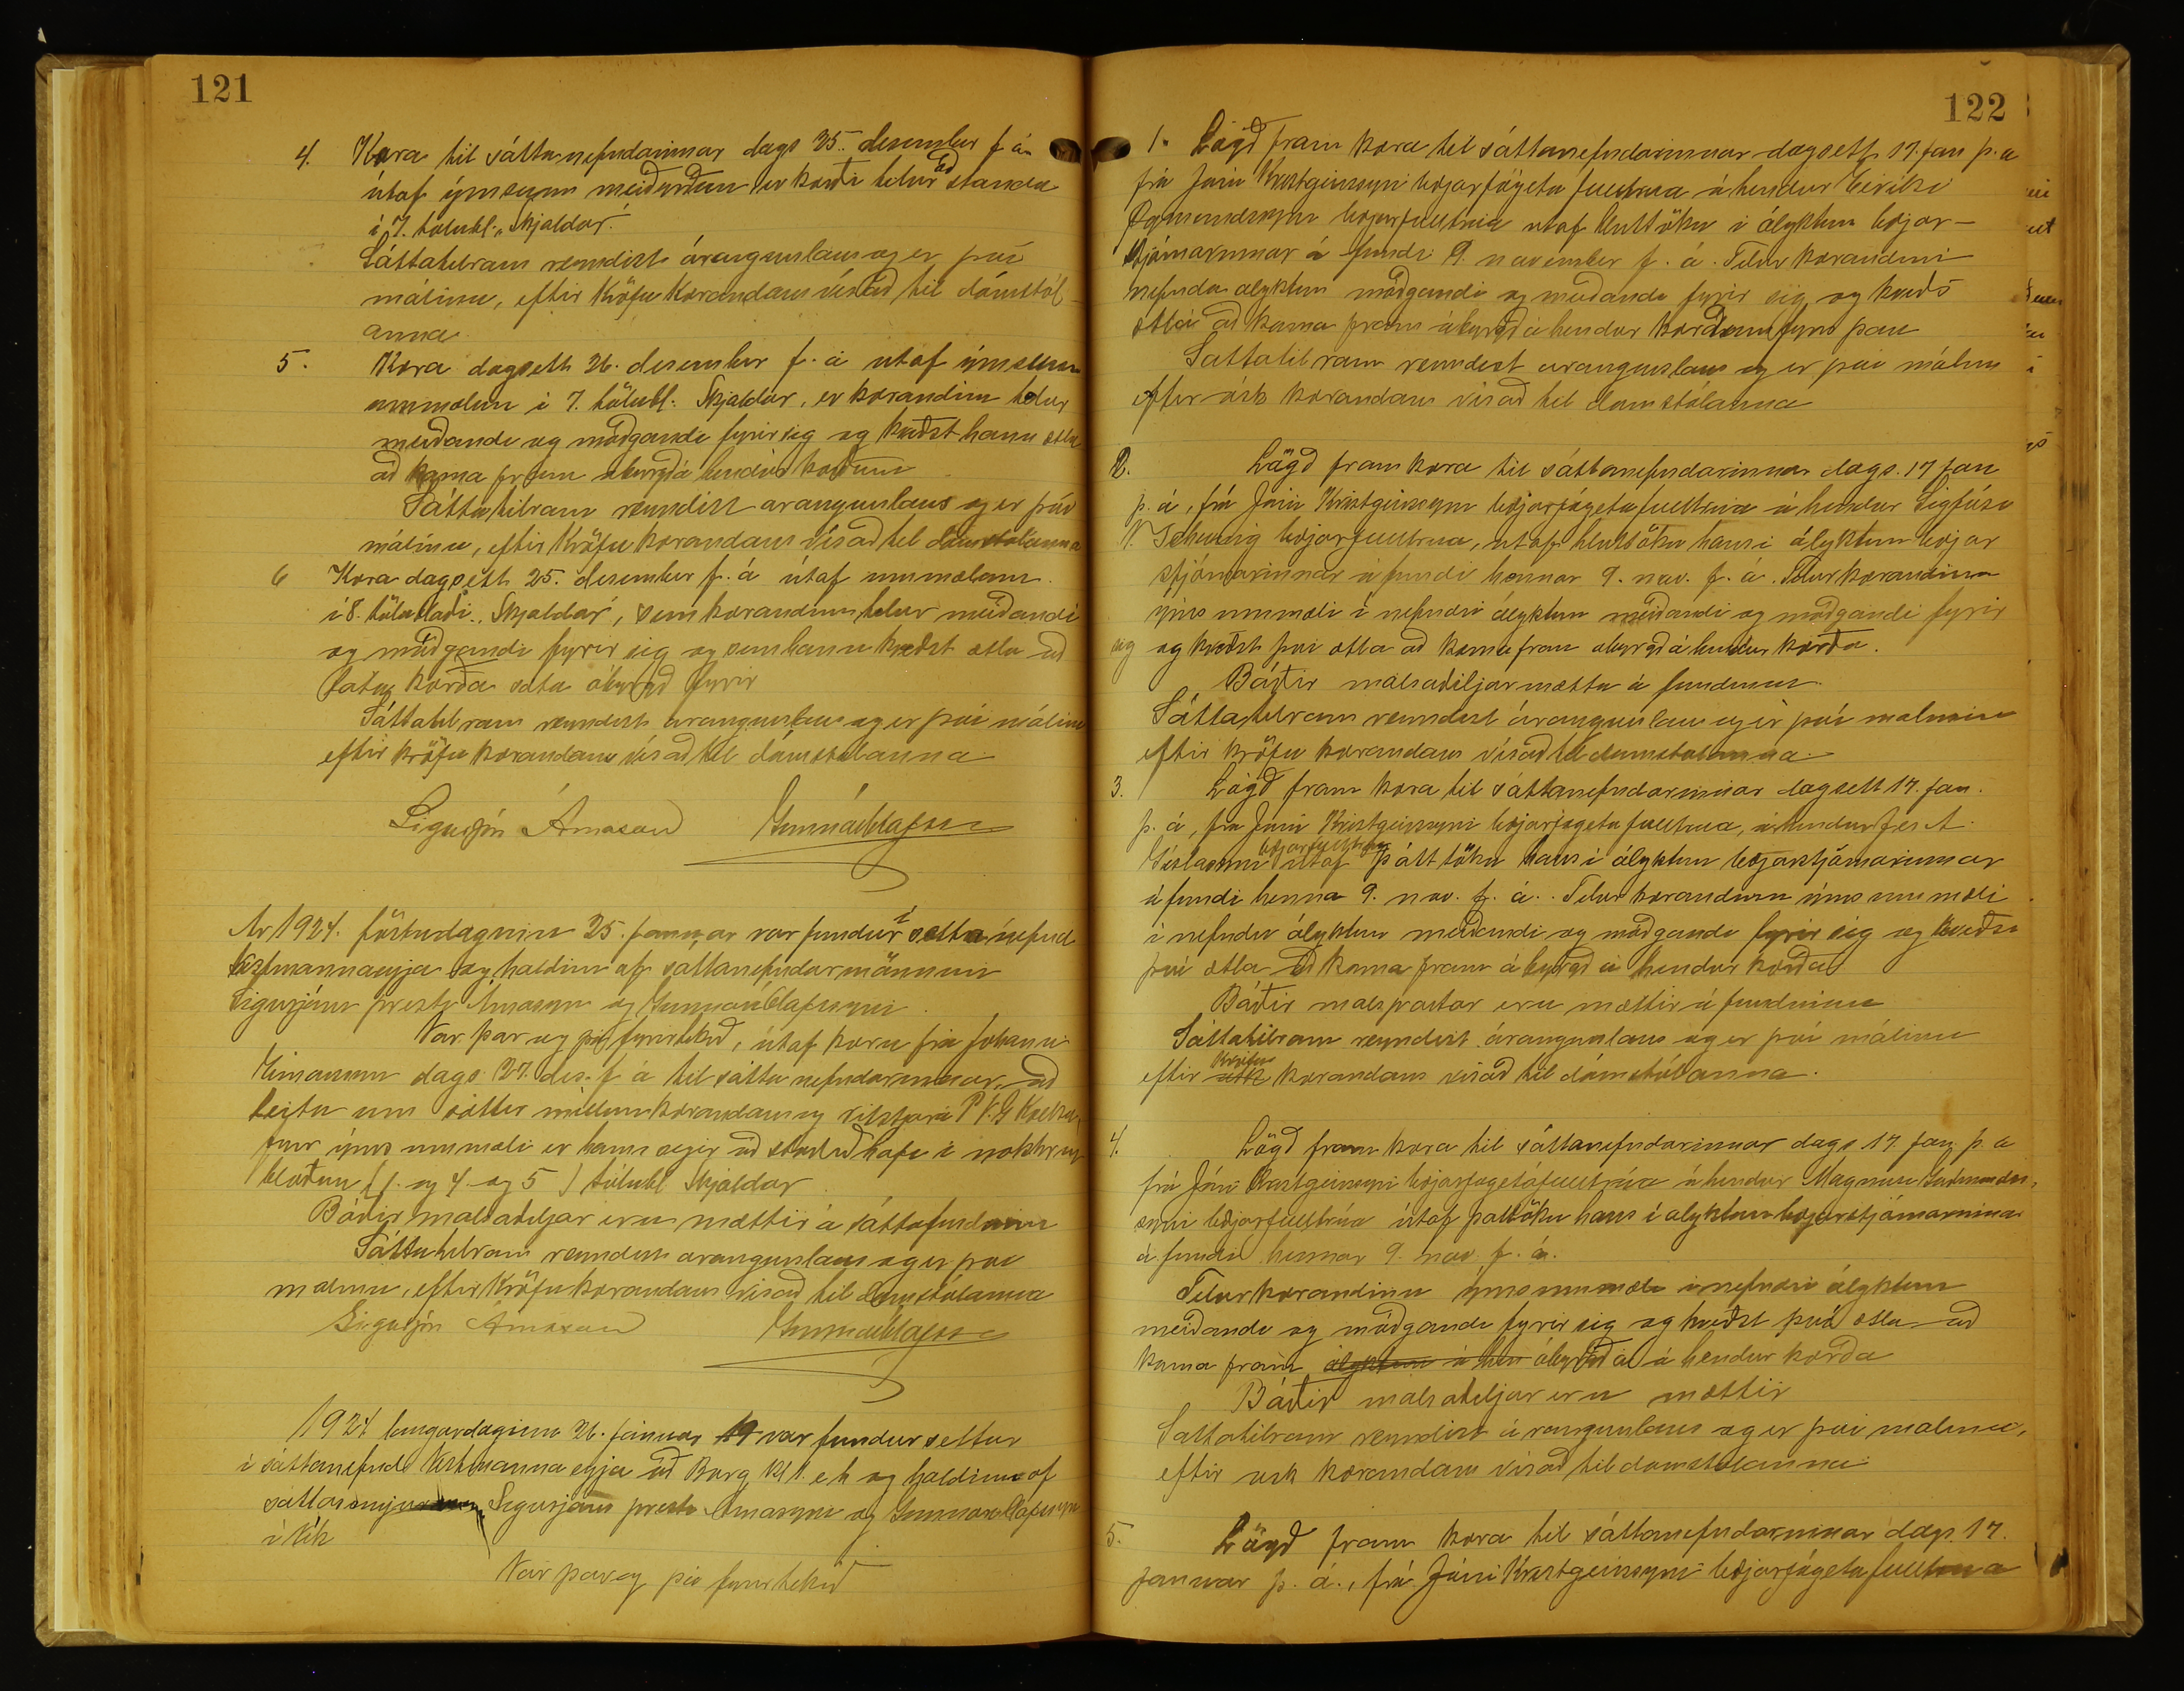 121
4. Kæra til sáttanefndarinnar dags 25. desember f á
útaf ýmsum meiðyrðum er kærði telur að standa
í 7. tölubl. „Skjaldar."
Sáttatilraun reyndist árangurslaus og er því
málinu, eftir kröfu kærandans vísað til dómstól-
anna.
5. Kæra dagsett 26. desember f. á útaf ýmsum
ummælum í 7. tölubl. Skjaldar, er kærandinn telur
meiðandi og móðgandi fyrir sig og kveðst hann ætla
að koma fram ábyrgð á hendur kærðum
Sáttatilraun reyndist árangurslaus og er því
málinu, eftir kröfu kærandans vísað til dómstólanna
6 Kæra dagsett 25. desember f. á útaf ummælum
í 8. tölublaði „Skjaldar", sem kærandinn telur meiðandi
og móðgandi fyrir sig og sem hann kveðst ætla að
láta kærða sæta ábyrgð fyrir
Sáttatilraun reyndist árangurslaus og er því málinu
eftir kröfu kærandans vísað til dómstólanna.
Sigurjón Árnason Gunnar Ólafsson
Ár 1924. föstudaginn 25. janúar var fundur í sáttanefnd
Vestmannaeyja og haldinn af sáttanefndarmönnum
Sigurjóni presti Árnasyni og Gunnari Ólafssyni.
Var þar og þá fyrirtekið, útaf kæru frá Jóhanni
dags. 27. des. f á til sáttanefndarinnar, að
leita um sáttir millum kærandans og ritstjóra P. V. G Kolka,
fyrir ýms ummæli er hann segir að staðið hafi í nokkrum
blöðum (1. og 4. og 5) tölubl Skjaldar
Báðir málsaðiljar eru mættir á sáttafundinum
Sáttatilraun reyndist árangurslaus og er því
málinu, eftir kröfu kærandans vísað til dómstólanna
Sigurjón Árnason Gunnar Ólafsson
1924 laugardaginn 26. janúar 19 var fundur settur
í sáttanefnd Vestmannaeyja að Borg kl 1. e h og haldinn af
Sigurjóni presti Árnasyni og Gunnari Ólafssyni
í Vík
Var þar og þá fyrirtekið
122
1. Lögð fram kæra til sáttanefndarinnar dagsett 17. jan þ. á
frá Jóni Kristgeirssyni bæjarfógetafulltrúa á hendur Eiríki
Ögmundssyni bæjarfulltrúa útaf hluttöku í ályktun bæjar-
stjórnarinnar á fundi 9. november f. á. Telur kærandinn
nefnda ályktun móðgandi og meiðandi fyrir sig og kveðs
ætla að koma fram ábyrgð á hendur kærðum fyrir þau
Sáttatilraun reyndist árangurslaus og er því málinu
eftir ósk kærandans vísað til dómstólanna
2. Lögð fram kæra til sáttanefndarinnar dags. 17 jan
þ. á, frá Jóni Kristgeirssyni bæjarfógetafulltrúa á hendur Sigfúsi
V. Scheving bæjarfulltrúa, útaf hluttöku hans í ályktun bæjar
stjórnarinnar á fundi hennar 9. nóv. f. á. Telur kærandinn
ýms ummæli í nefndri ályktun meiðandi og móðgandi fyrir
sig og kveðst því ætla að koma fram ábyrgð á hendur kærða.
Báðir málsaðiljar mættu á fundinum
Sáttatilraun reyndist árangurslaus og er því málinu
eftir kröfu kærandans vísað til dómstólanna.
3. Lögð fram kæra til sáttanefndarinnar dagsett 17. jan.
þ. á, frá Jóni Kristgeirssyni bæjarfógetafulltrúa, á hendur Jes A.
Gíslasyni bæjarfulltrúa útaf þátttöku hans í ályktun bæjarstjórnarinnar
á fundi henna 9. nóv. f. á. Telur kærandinn ýms ummæli
í nefndri ályktun meiðandi og móðgandi fyrir sig og kveðst
því ætla að koma fram ábyrgð á hendur kærða
Báðir málspartar eru mættir á fundinum
Sáttatilraun reyndist árangurslaus og er því málinu
eftir ósk kröfu kærandans vísað til dómstólanna.
4. Lögð fram kæra til sáttanefndarinnar dags 17. jan þ. á
frá Jóni Kristgeirssyni bæjarfógetafulltrúa á hendur Magnúsi Guðmunds-
syni bæjarfulltrúa útaf þattöku hans í ályktun bæjarstjórnarinnar
á fundi hennar 9. nóv. f. á.
Telur kærandinn ýms ummæli í nefndri ályktun
meiðandi og móðgandi fyrir sig og kveðst því ætla að
koma fram ályktun á hen ábyrgð á á hendur kærða
Báðir málsaðiljar eru mættir
Sáttatilraun reyndist árangurslaus og er því málinu,
eftir ósk kærandans vísað til dómstólanna
5. Lögð fram kæra til sáttanefndarinnar dags. 17.
janúar þ. á., frá Jóni Kristgeirssyni bæjarfógetafulltrúa